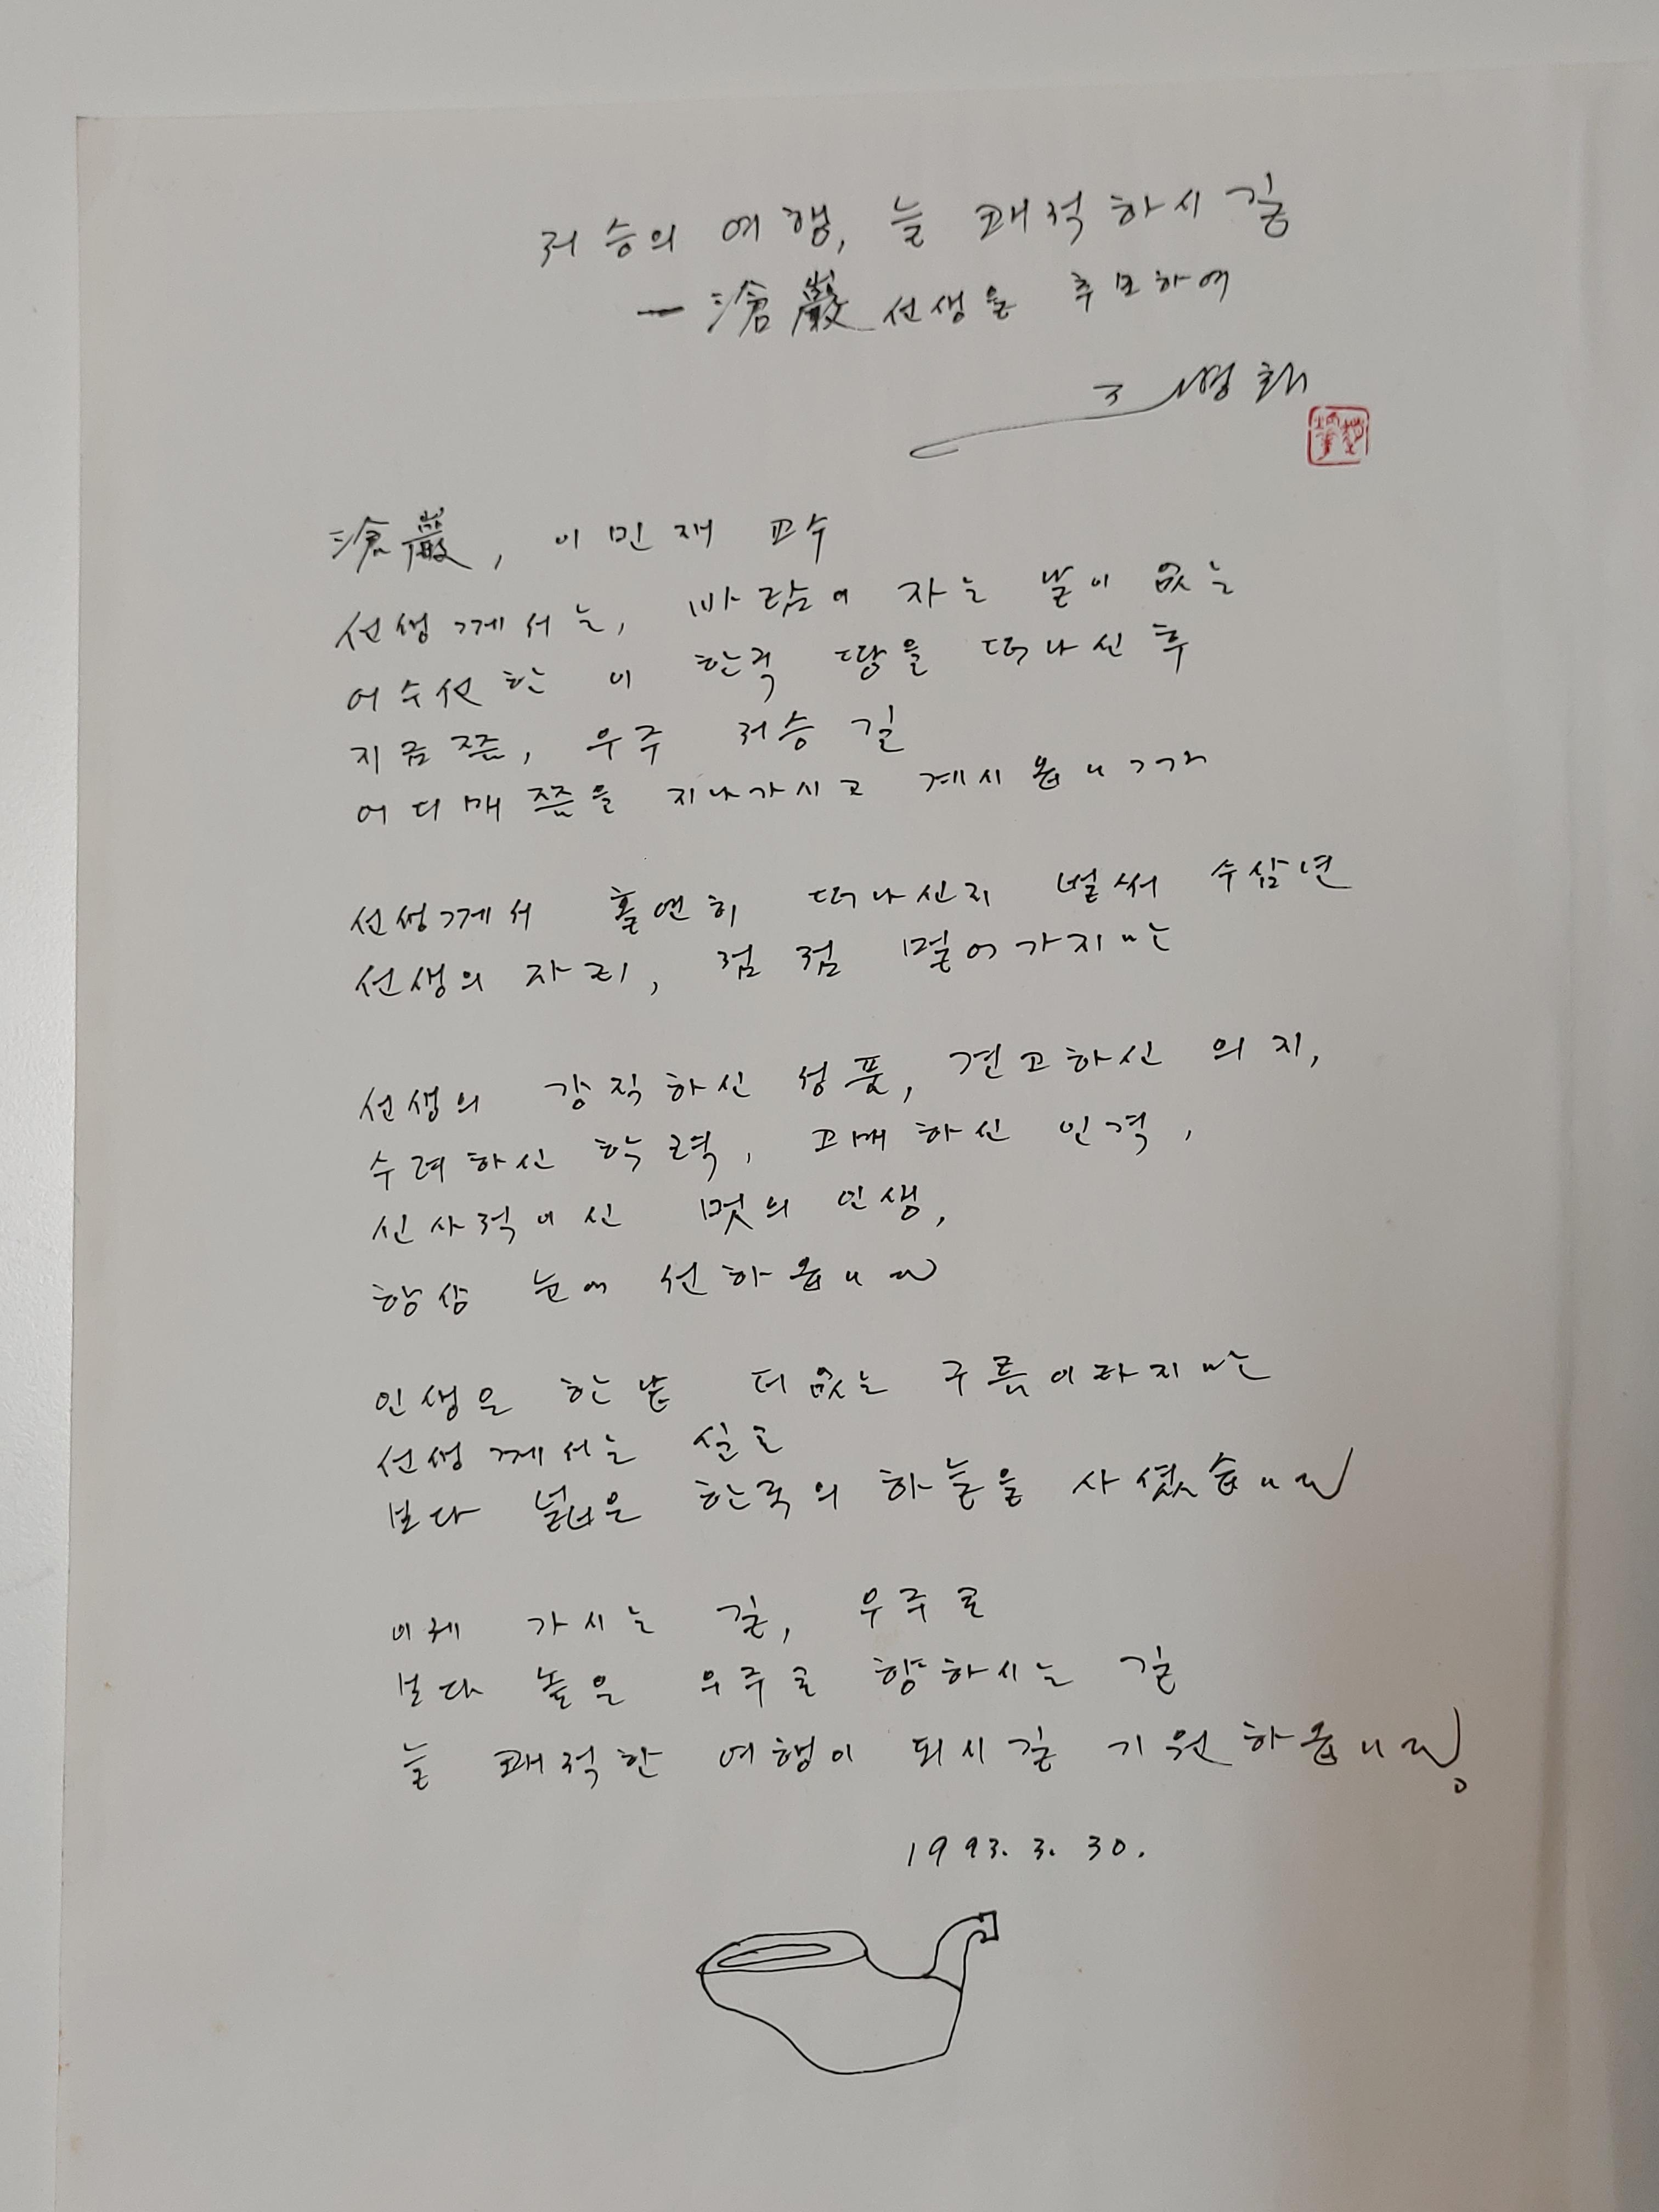 저승의 여행, 늘 쾌적하시길
— 滄巖 선생을 추모하여
조병화
滄巖, 이민재 교수
선생께서는, 바람이 자는 날이 없는
어수선한 이 한국 땅을 떠나신 후
지금쯤, 우주 저승 길
어디매쯤을 지나가시고 계시옵니까
선생께서 홀연히 떠나신지 벌써 수삼년
선생의 자리, 점점 멀어가지만
선생의 강직하신 성품, 견고하신 의지,
수려하신 학력, 고매하신 인격,
신사적이신 멋의 인생,
항상 눈에 선하옵니다
인생은 한낱 덧없는 구름이라지만
선생께서는 실로
보다 넓은 한국의 하늘을 사셨습니다
이제 가시는 길, 우주로
보다 높은 우주로 향하시는 길
늘 쾌적한 여행이 되시길 기원하옵니다。
1993. 3. 30.